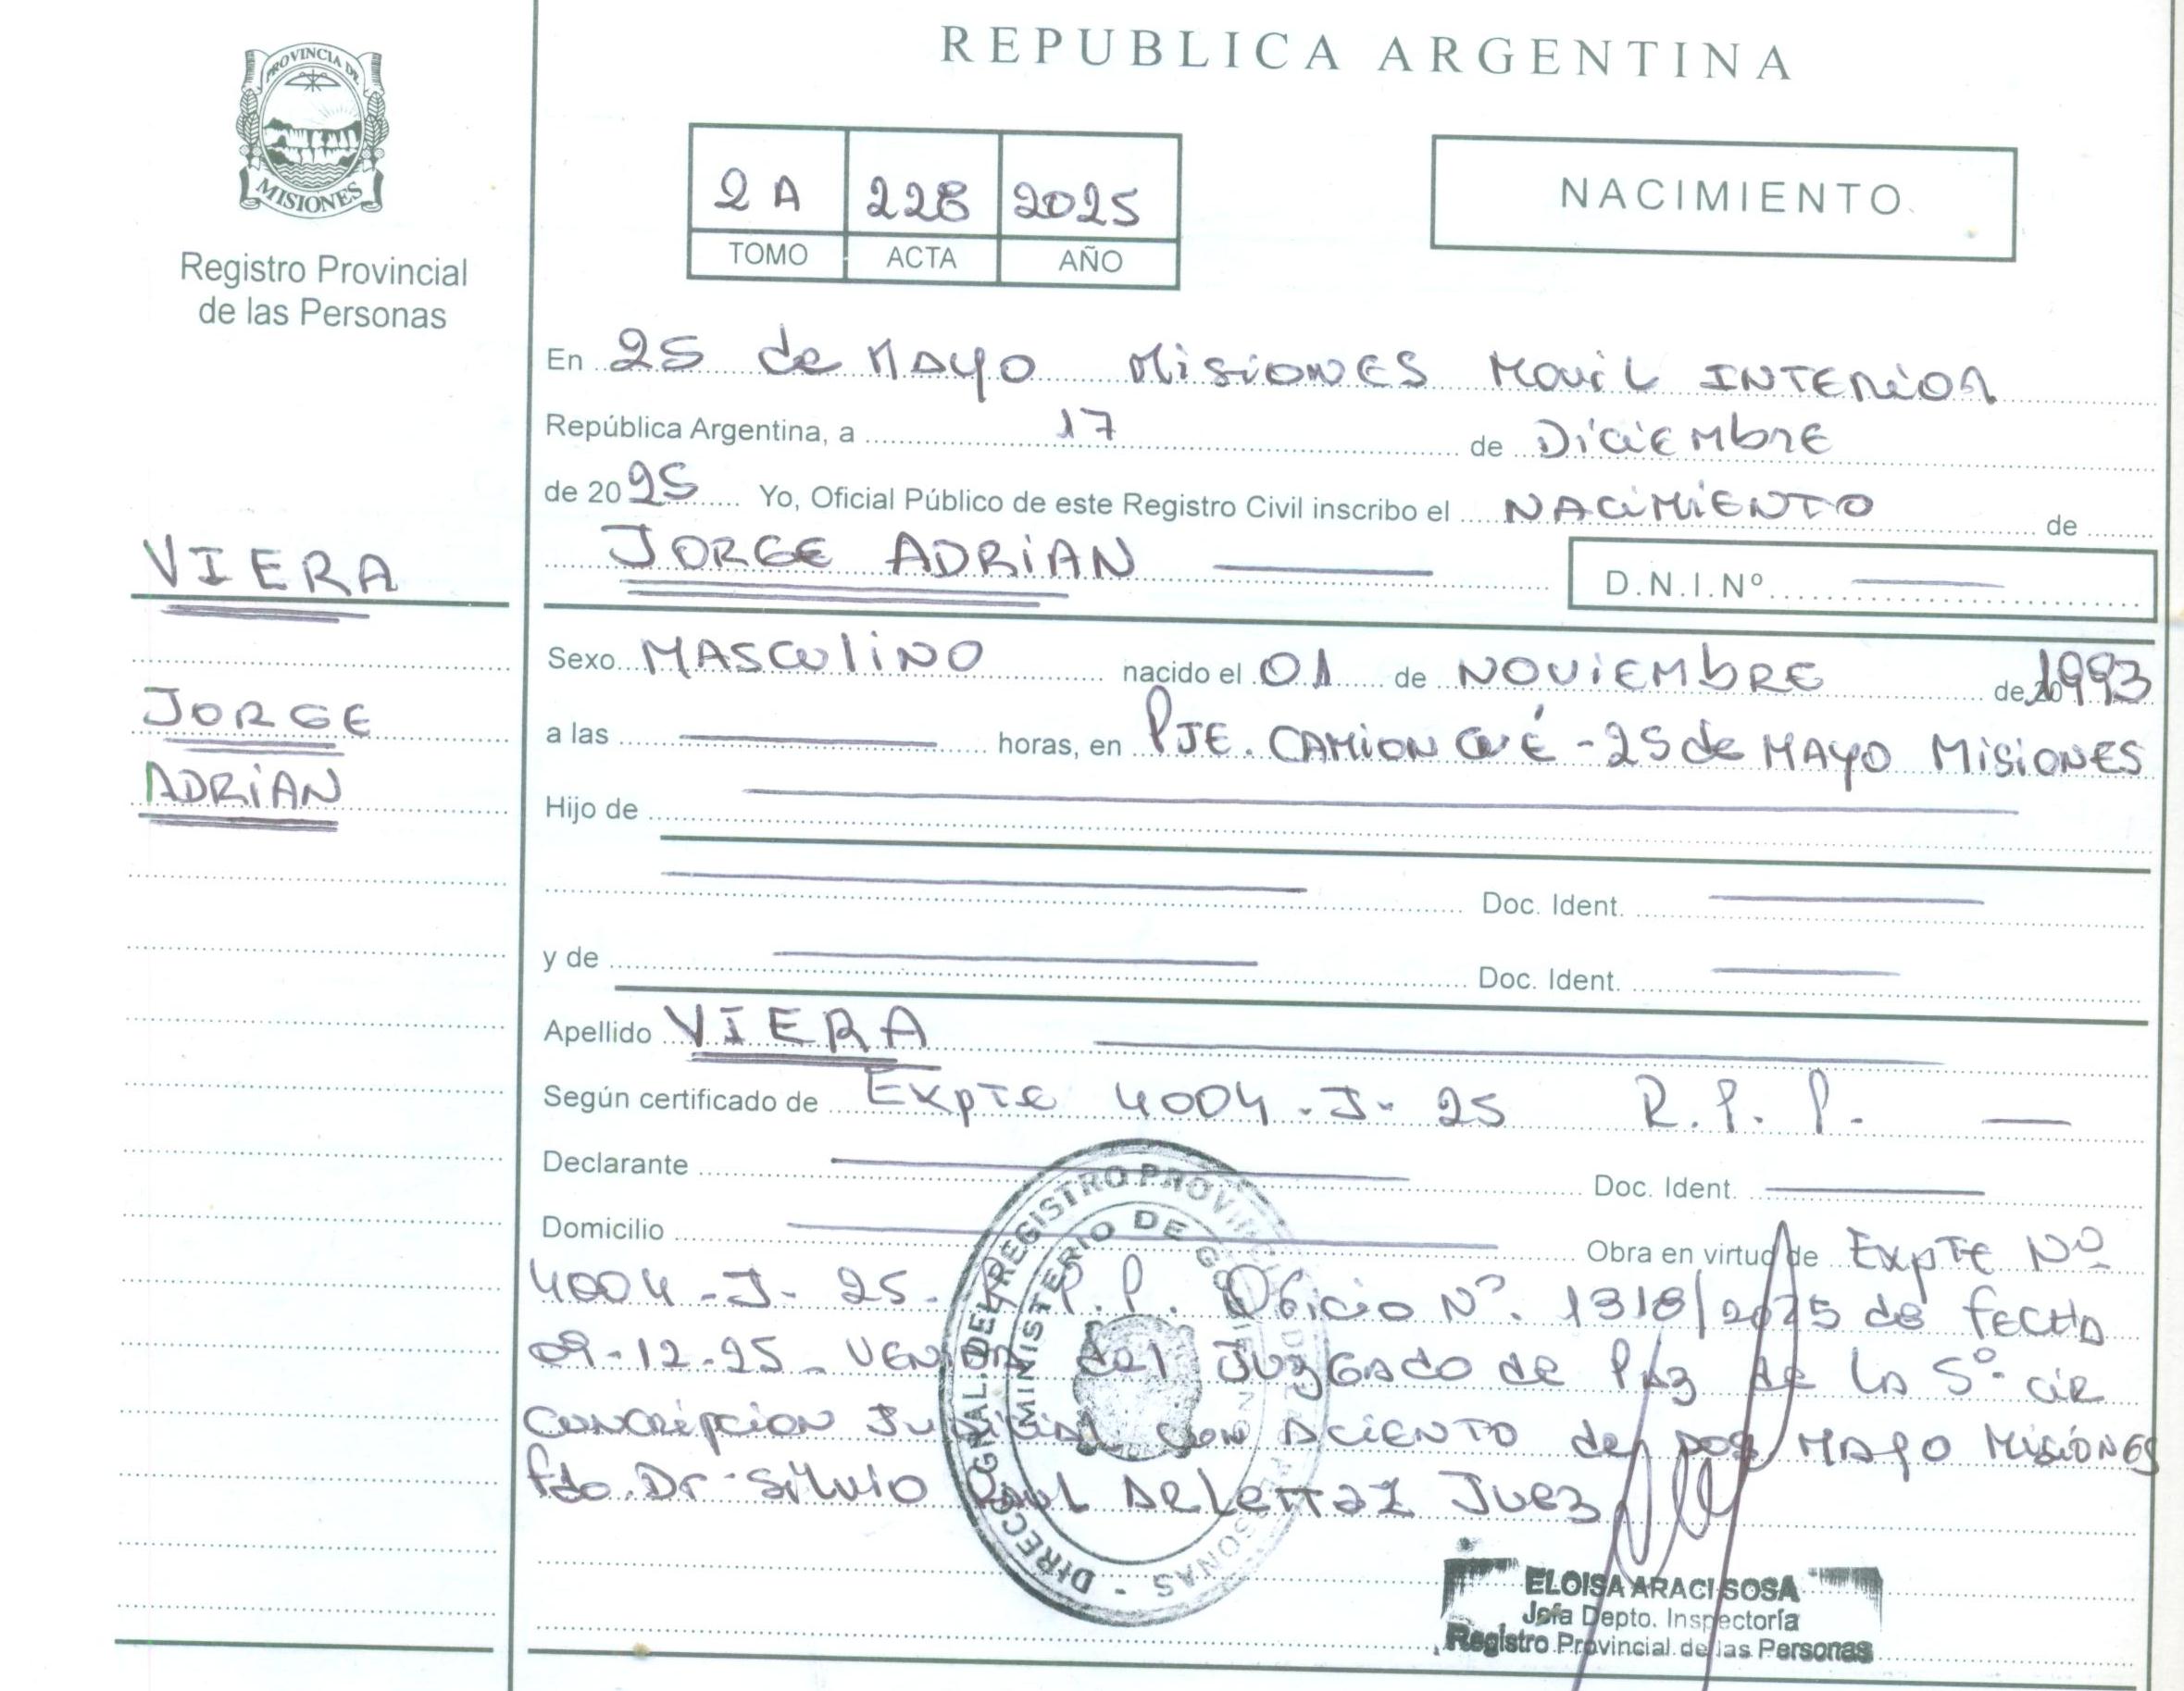 REPUBLICA ARGENTINA
PROVINCIA DE MISIONES
Registro Provincial
de las Personas
2A 228 2025
TOMO ACTA AÑO
NACIMIENTO
En 25 de MAYO MisiONES Movil INTERiOR
República Argentina, a 17 de DiciEMbRE
de 20 25 Yo, Oficial Público de este Registro Civil inscribo el NACiMiENTO de
VIERA
JORGE ADRiAN
D.N.I.Nº
Sexo MASCuliNO nacido el 01 de NOViEMbRE de 1993
JORGE
ADRiAN
a las horas, en PJE. CAMiON CUÉ - 25 de MAYO MisiONES
Hijo de
Doc. Ident.
y de Doc. Ident.
Apellido VIERA
Según certificado de ExpTe 4004-J-25 R.P.P.
Declarante Doc. Ident.
Domicilio Obra en virtud de ExpTE Nº
4004-J-25. R.P.P. Oficio Nº. 1318/2025 de fECHA
09-12-25 - del JuzGAdo de PAz de LA 5º- CiR
CONCRipCiON JudiCiAL CON ACiENTO de MAyO MiSiONES
fdo. Dr. Silvio RAuL ARLettaz Juez
DIRECC. GRAL. DEL REGISTRO PROVINCIAL DE LAS PERSONAS -
MINISTERIO DE GOBIERNO
ELOISA ARACI SOSA
Jefa Depto. Inspectoría
Registro Provincial de las Personas